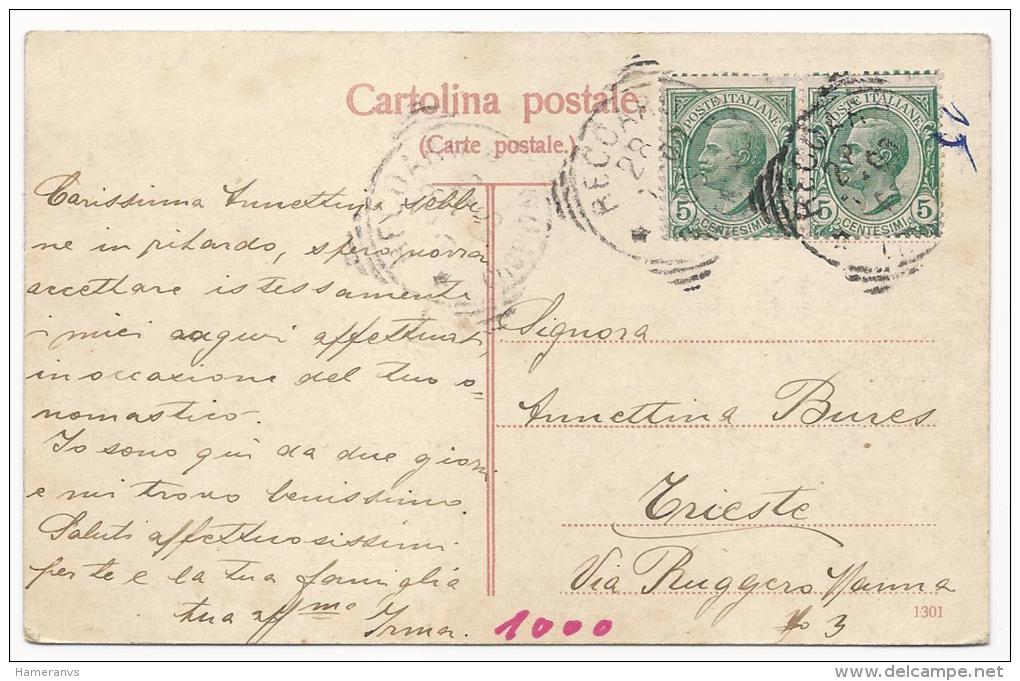 Cartolina postale
(Carte postale.)
POSTE ITALIANE
5 CENTESIMI 5
POSTE ITALIANE
5 CENTESIMI 5
RECOARO
28
RECOARO
28
15
Carissima Annettina sebbe
ne in ritardo, spero vorrai
accettare istessamente
i miei auguri affettuosi,
in occasione del tuo o=
nomastico.
Io sono qui da due giorni
e mi trovo benissimo.
Saluti affettuosissimi
per te e la tua famiglia
tua aff.mo Irma.
Signora
Annettina Bures
Trieste
Via Ruggero Manna
No 3
1301
1000
Hameranvs
delcampe.net